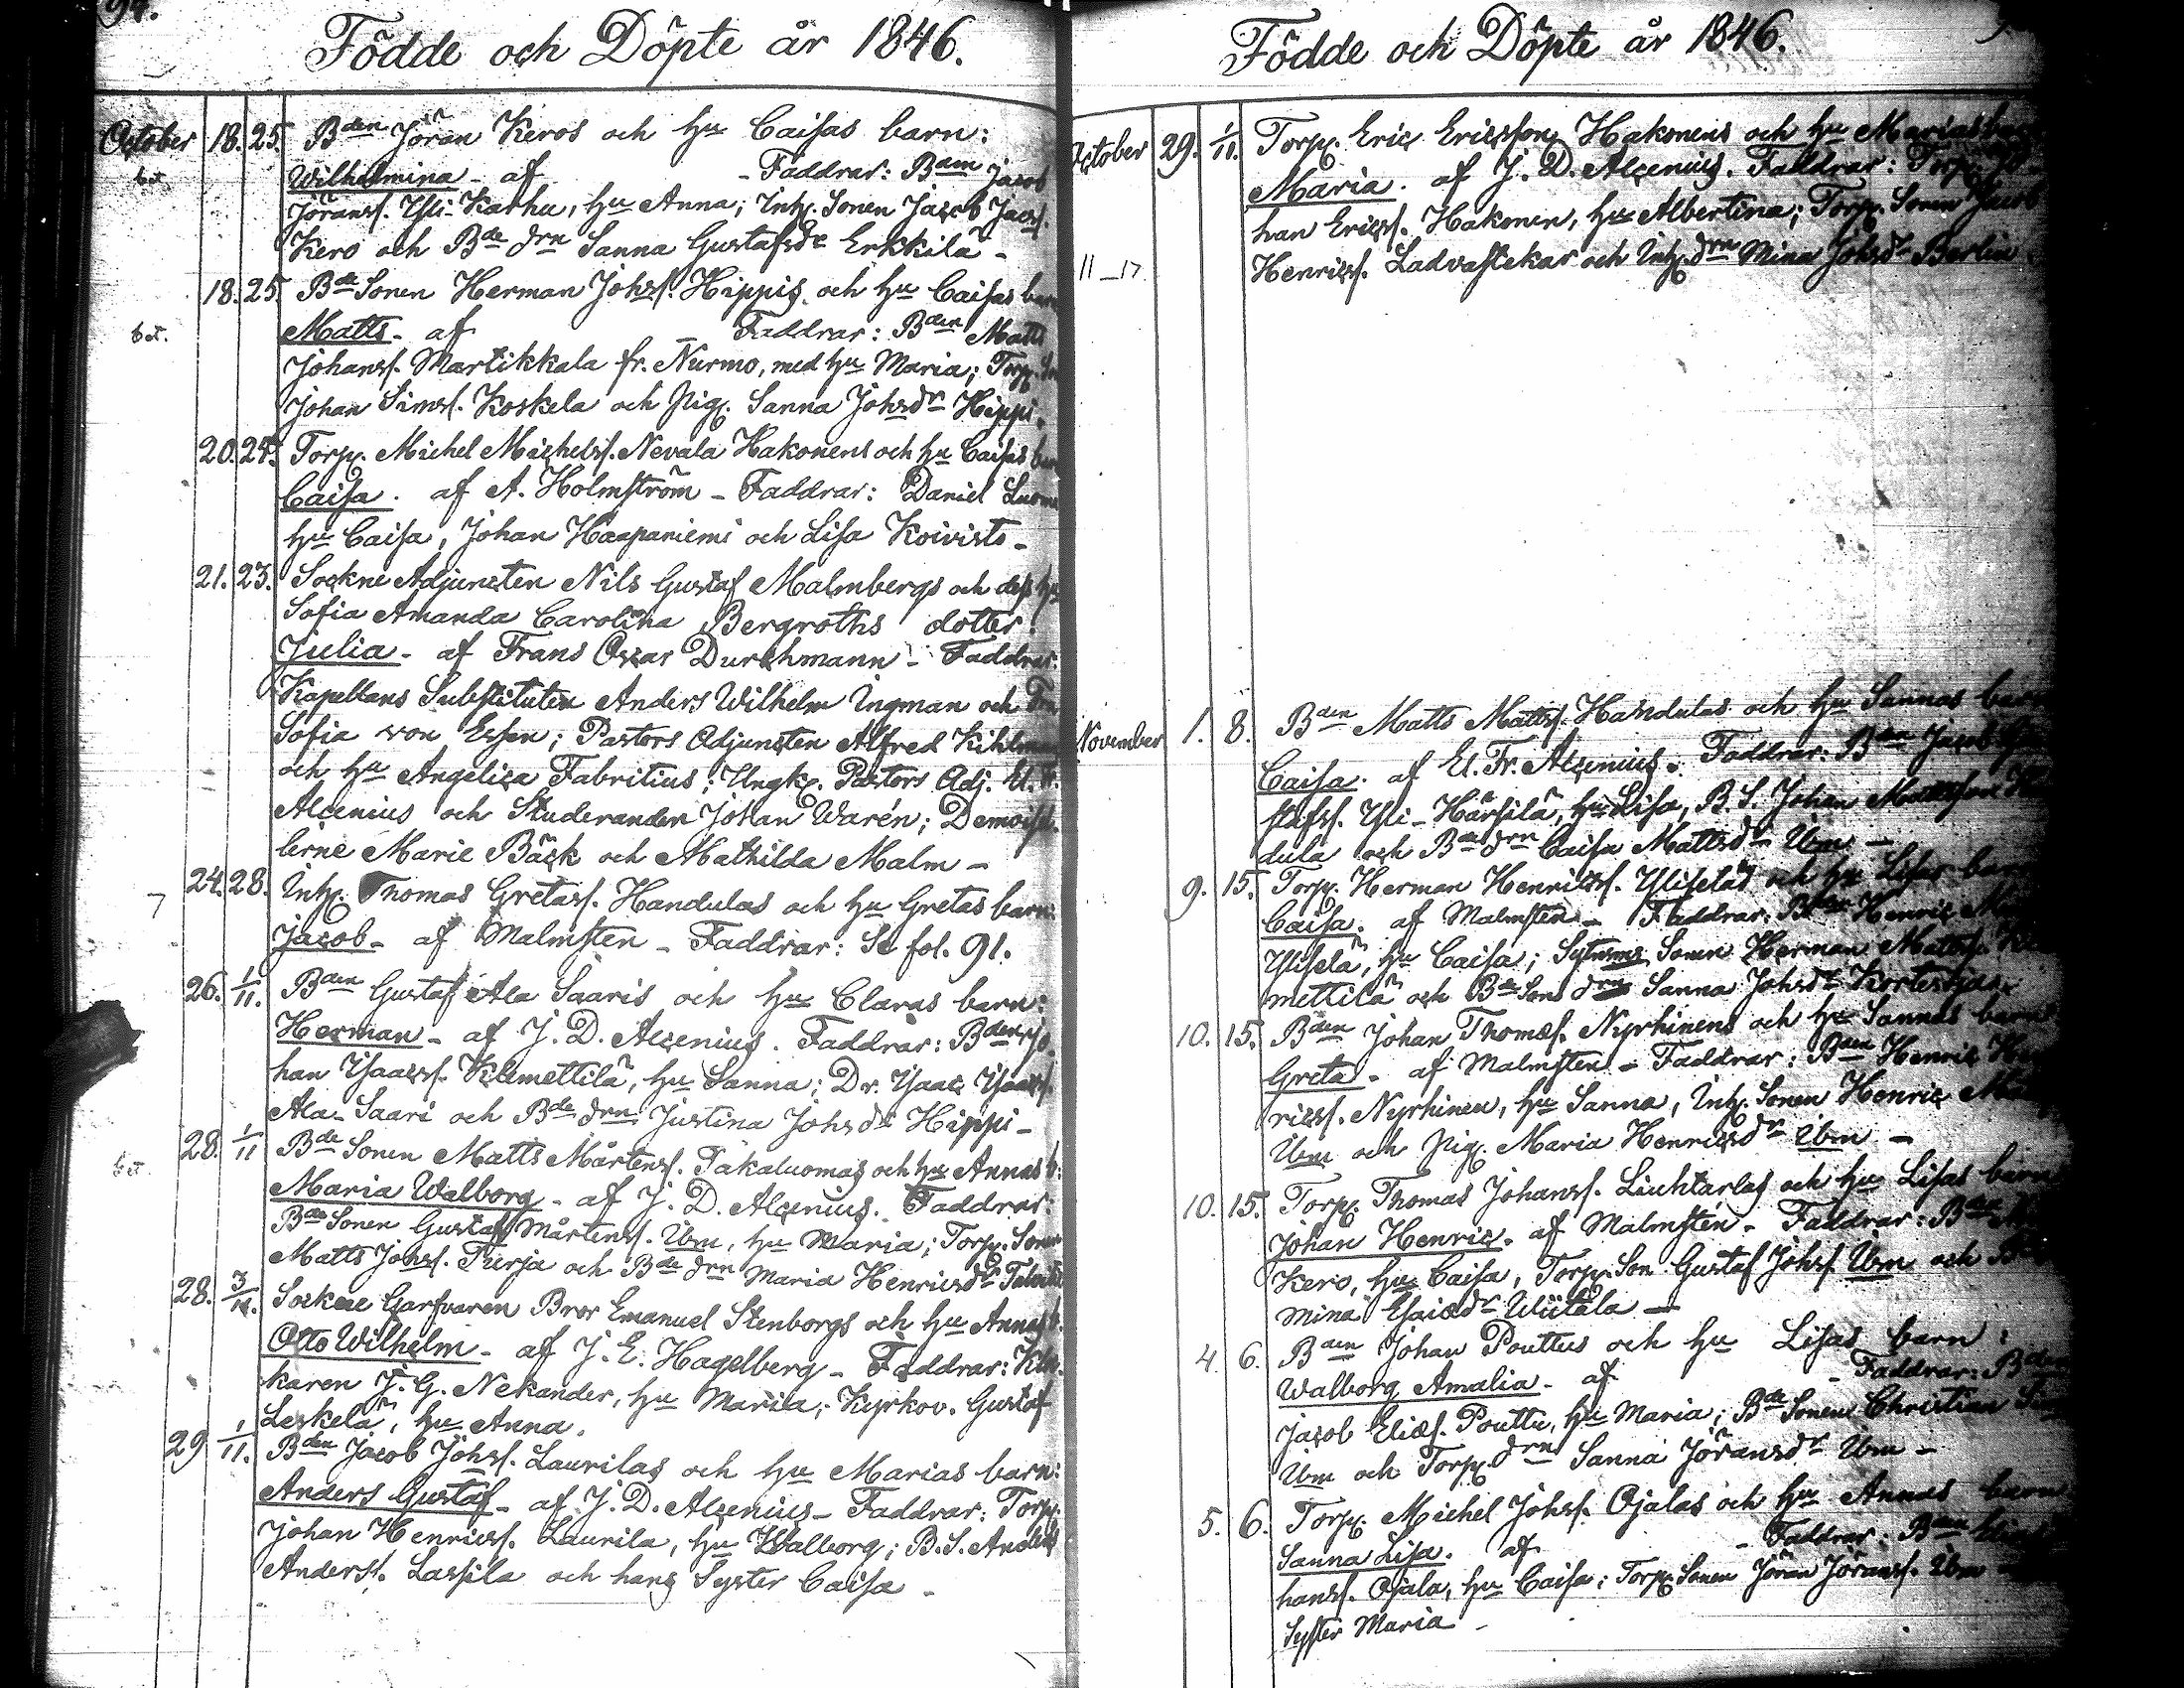 94.
Födde och Döpte år 1846.
October 18. 25. Bden Jöran Keros och hu Caisas barn:
bet. Wilhelmina - af - Faddrar: Bden Jacob
Jöranss. Yli-Karhu, hu Anna; Inh. Sonen Jacob Jacss.
Kero och Bde drn Sanna Gustafsdr Erkkilä -
18. 25. Bde Sonen Herman Johss. Hippis och hu Caisas barn
bet. Matts - af - Faddrar: Bden Matts
Johanss. Martikkala fr. Nurmo, med hu Maria; Torp. Son
Johan Simss. Koskela och Pig. Sanna Johsdr Hippi.
20. 25. Torp. Michel Michelss. Nevala Hakonens och hu Caisas barn
Caisa. af A. Holmström - Faddrar: Daniel Luoma
hu Caisa, Johan Haapaniemi och Lisa Koivisto -
21. 23. Sockne Adjuncten Nils Gustaf Malmbergs och dess hu
Sofia Amanda Carolina Bergroths dotter:
Julia - af Frans Oscar Durchmann - Faddrar:
Kapellans Substituten Anders Wilhelm Ingman och Fru
Sofia von Essen; Pastors Adjuncten Alfred Kihlman
och hu Angelica Fabritius; Ungk. Pastors Adj. El. Fr.
Alcenius och Studeranden Johan Warén; Demoisel-
lerne Marie Bäck och Mathilda Malm -
24. 28. Inh. Thomas Gretass. Handulas och hu Gretas barn:
Jacob - af Malmsten - Faddrar: Se fol. 91.
26. 1/11. Bden Gustaf Ala Saaris och hu Claras barn:
Herman - af J. D. Alcenius. Faddrar: Bden Jo-
han Isaacss. Klemettilä, hu Sanna; Dr. Isaac Isaacss.
Ala-Saari och Bde drn Justina Johsdr Hippi -
28. 1/11 Bde Sonen Matts Mårtenss. Takaluomas och hu Annas b:
bet. Maria Walborg - af J. D. Alcenius. Faddrar:
Bde Sonen Gustaf Mårtenss. Ibm, hu Maria; Torp. Sonen
Matts Johss. Turja och Bde drn Maria Henricsdr
28. 3/11. Sockne Garfvaren Bror Emanuel Stenborgs och hu Annas b.
Otto Wilhelm - af J. E. Hagelberg - Faddrar: Klo-
karen J. G. Nekander, hu Maria; Kyrkov. Gustaf
Leskelä, hu Anna.
29 1/11. Bden Jacob Johss. Laurilas och hu Marias barn:
Anders Gustaf - af J. D. Alcenius - Faddrar: Torp.
Johan Henricss. Laurila, hu Walborg; B. S. Anders
Anderss. Lassila och hans Syster Caisa -
Födde och Döpte år 1846.
October 29. 1/11. Torp. Eric Ericsson Hakonens och hu Marias barn
Maria. af J. D. Alcenius. Faddrar: Torp. Jo-
han Ericss. Hakonen, hu Albertina; Torp. Sonen Jacob
Henricss. Ladvastekar och Inh. drn Mina Johsdr Berlin
11_17
November 1. 8. Bden Matts Mattss. Handulas och hu Sannas barn
Caisa. af El. Fr. Alcenius. Faddrar: Bden Jacob Gu-
stafss. Yli-Härsilä, hu Lisa, B. S. Johan Mattsson Han-
dula och Bde drn Caisa Mattsdr Ibm -
9. 15. Torp. Herman Henricss. Ylisetäs och hu Lisas barn
Caisa. af Malmsten - Faddrar: Bden Henric
Ylisetä, hu Caisa; Sytnings Sonen Herman Mattss. Kle-
mettilä och Bde Sons drn Sanna Johsdr Kortesoja
10. 15. Bden Johan Thomss. Nyrhinens och hu Sannas barn
Greta - af Malmsten - Faddrar: Bden Henric Hen-
ricss. Nyrhinen, hu Sanna, Inh. Sonen Henric
Ibm och Pig. Maria Henricsdr Ibm -
10. 15. Torp. Thomas Johanss. Liuhtarlas och hu Lisas barn
Johan Henric. af Malmstén - Faddrar: Bden
Kero, hu Caisa, Torp. Son Gustaf Johss. Ibm och
Mina Esaiedr Wiitala -
4. 6. Bden Johan Pouttus och hu Lisas barn:
Walborg Amalia - af - Faddrar: Bden
Jacob Eliess. Pouttu, hu Maria; Bde Sonen Christian
Ibm och Torp. drn Sanna Jöransdr Ibm -
5. 6. Torp. Michel Johss. Ojalas och hu Annas barn
Sanna Lisa. af - Faddrar: Bden
hanss. Ojala, hu Caisa; Torp. Sonen Jöran Jöranss. Ibm
Syster Maria -